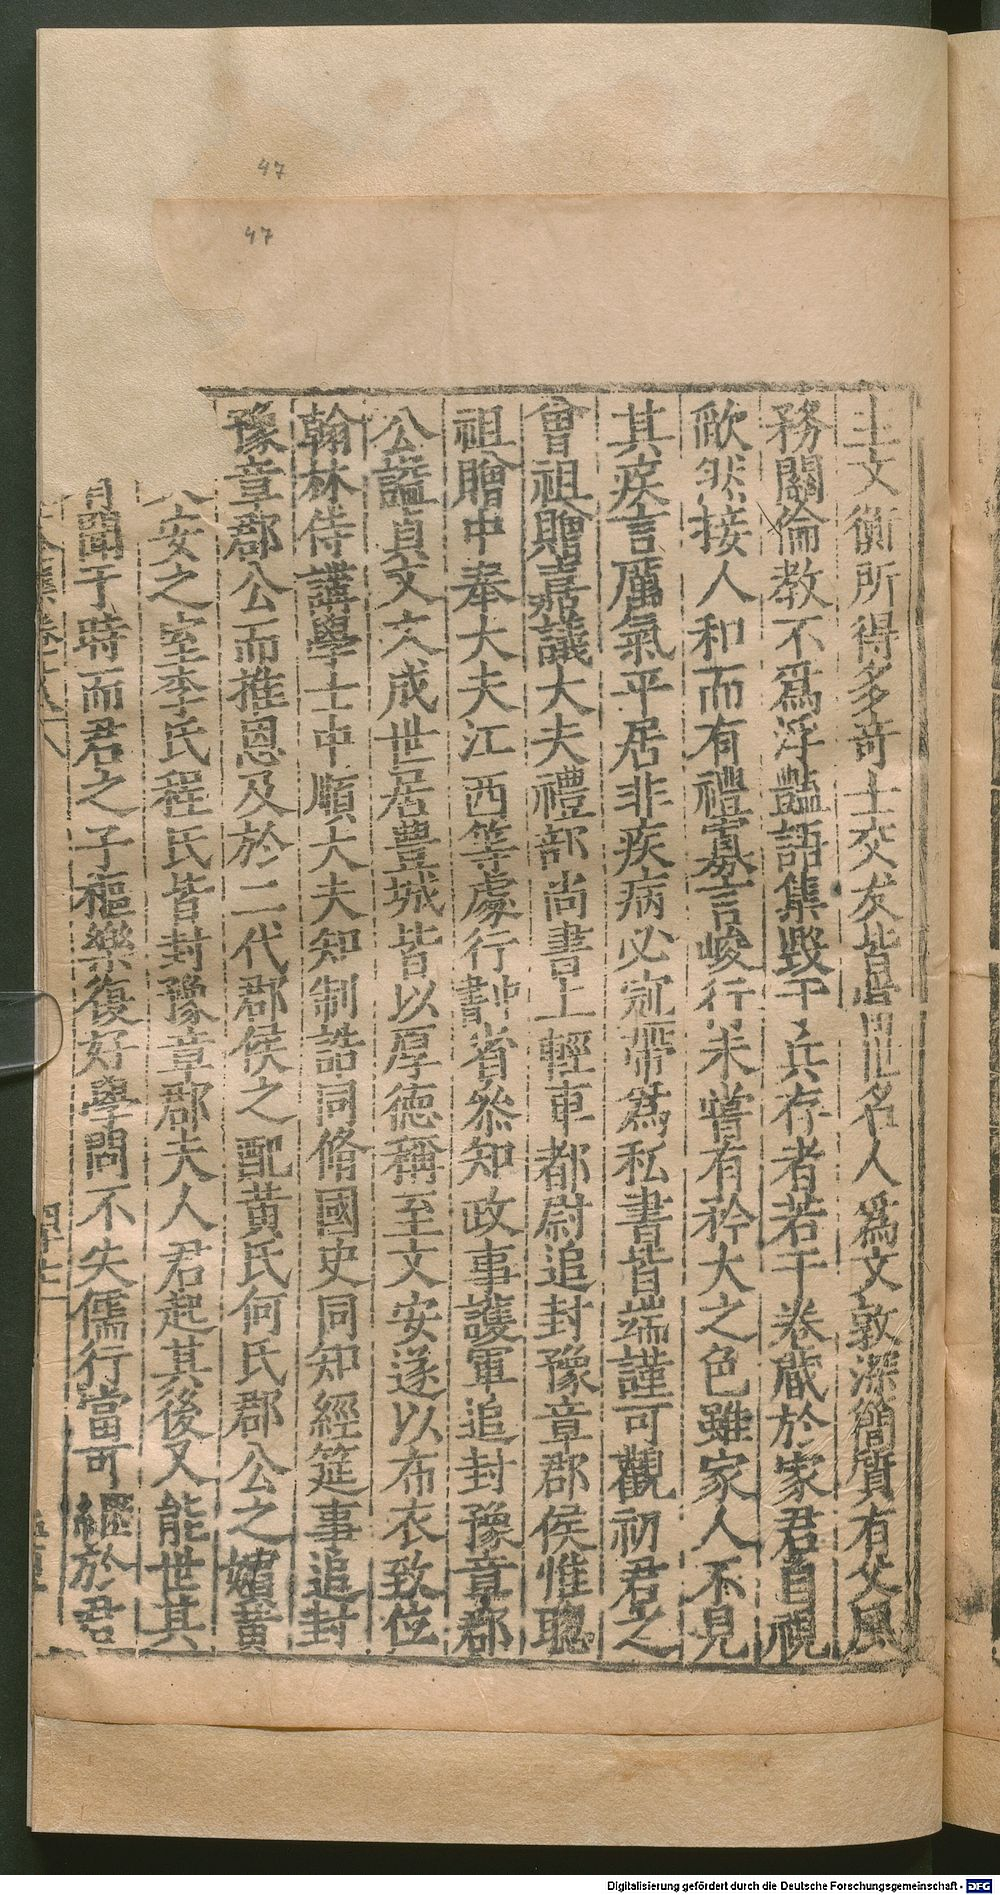 47
47
主文衡所得多奇士交友皆當世名人爲文敦深簡質有父風
務關倫教不爲浮豔語集燬于兵存者若干卷藏於家君自視
歉然接人和而有禮寡言峻行未嘗有矜大之色雖家人不見
其疾言厲氣平居非疾病必冠帶爲私書皆端謹可觀初君之
曾祖贈嘉議大夫禮部尚書上輕車都尉追封豫章郡侯惟聰
祖贈中奉大夫江西等處行中書省參知政事護軍追封豫章郡
公謚貞文文成世居豐城皆以厚德稱至文安遂以布衣致位
翰林侍講學士中順大夫知制誥同脩國史同知經筵事追封
豫章郡公而推恩及於二代郡侯之配黃氏何氏郡公之嬪黃
安之室李氏程氏皆封豫章郡夫人君起其後又能世其
有聞于時而君之子樞樂復好學問不失儒行當可經於君
Digitalisierung gefördert durch die Deutsche Forschungsgemeinschaft - DFG